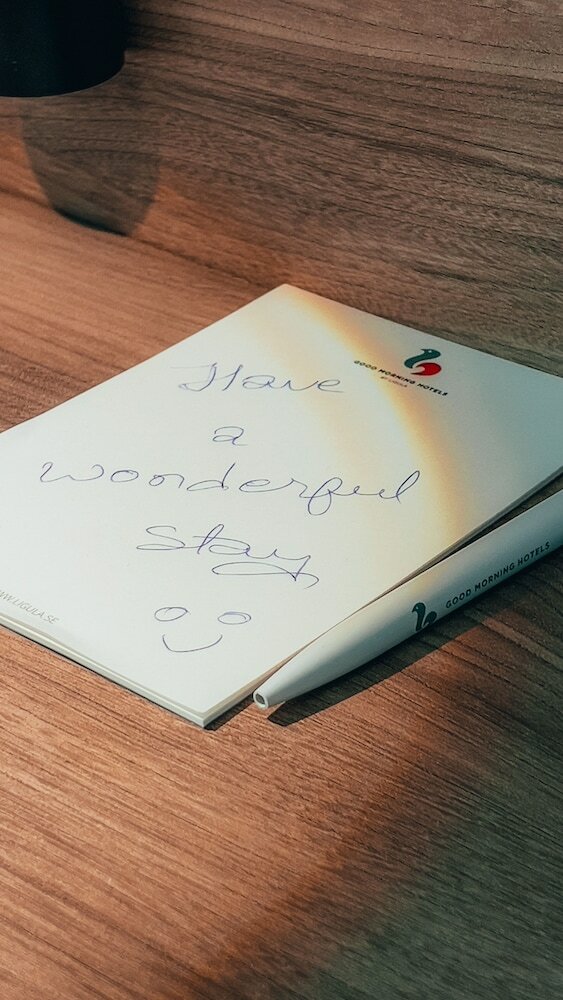 GOOD MORNING HOTELS
BY LIGULA
Have
a
wonderful
stay
WWW.LIGULA.SE
GOOD MORNING HOTELS